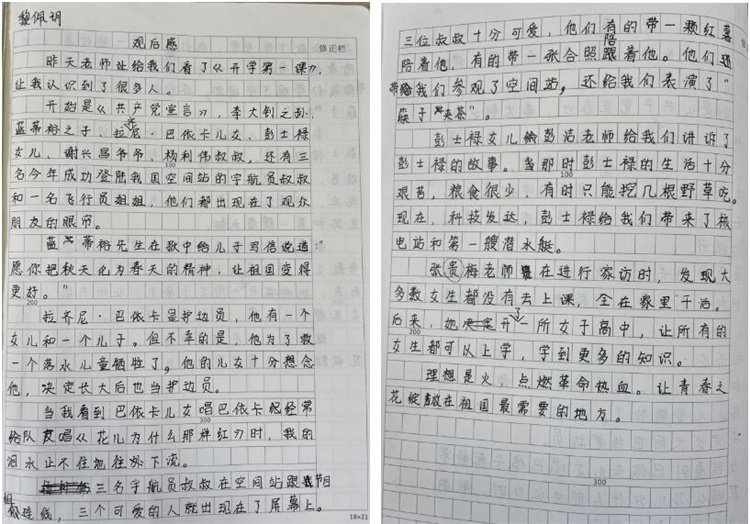 黎佩玥
观后感
修正栏
昨天老师让给我们看了《开学第一课》,
让我认识到了很多人。
开始是《共产党宣言》,李大钊之孙,
蓝蒂裕之子、拉齐尼·巴依卡儿女、彭士禄
女儿、谢兴昌爷爷、杨利伟叔叔,还有三
100
名今年成功登陆我国空间站的宇航员叔叔
和一名飞行员姐姐,他们都出现在了观众
朋友的眼帘。
蓝蒂裕先生在狱中给儿子写信说道:“
愿你把秋天化为春天的精神,让祖国变得
更好。”
200
拉齐尼·巴依卡是护边员,他有一个
女儿和一个儿子。但不幸的是,他为了救
一个落水儿童牺牲了。他的儿女十分想念
他,决定长大后也当护边员。
当我看到巴依卡儿女唱巴依卡经常
300
给队友唱《花儿为什么那样红》时,我的
泪水止不住地往外流。
三名宇航员叔叔在空间站跟节目
组连线,三个可爱的人就出现在了屏幕上。
18×21
三位叔叔十分可爱,他们有的带一颗红薯
陪着他,有的带一张合照陪着他。他们还
带我们参观了空间站,还给我们表演了“
筷子“夹茶”。
彭士禄女儿彭洁老师给我们讲诉了
彭士禄的故事。当那时彭士禄的生活十分
100
艰苦,粮食很少,有时只能挖几根野草吃。
现在,科技发达,彭士禄给我们带来了核
电站和第一艘潜水艇。
张贵梅老师在进行家访时,发现大
多数女生都没有去上课,全在家里干活。
200
后来,她决定开了一所女子高中,让所有的
女生都可以上学,学到更多的知识。
理想是火,点燃革命热血。让青春之
花绽放在祖国最需要的地方。
300